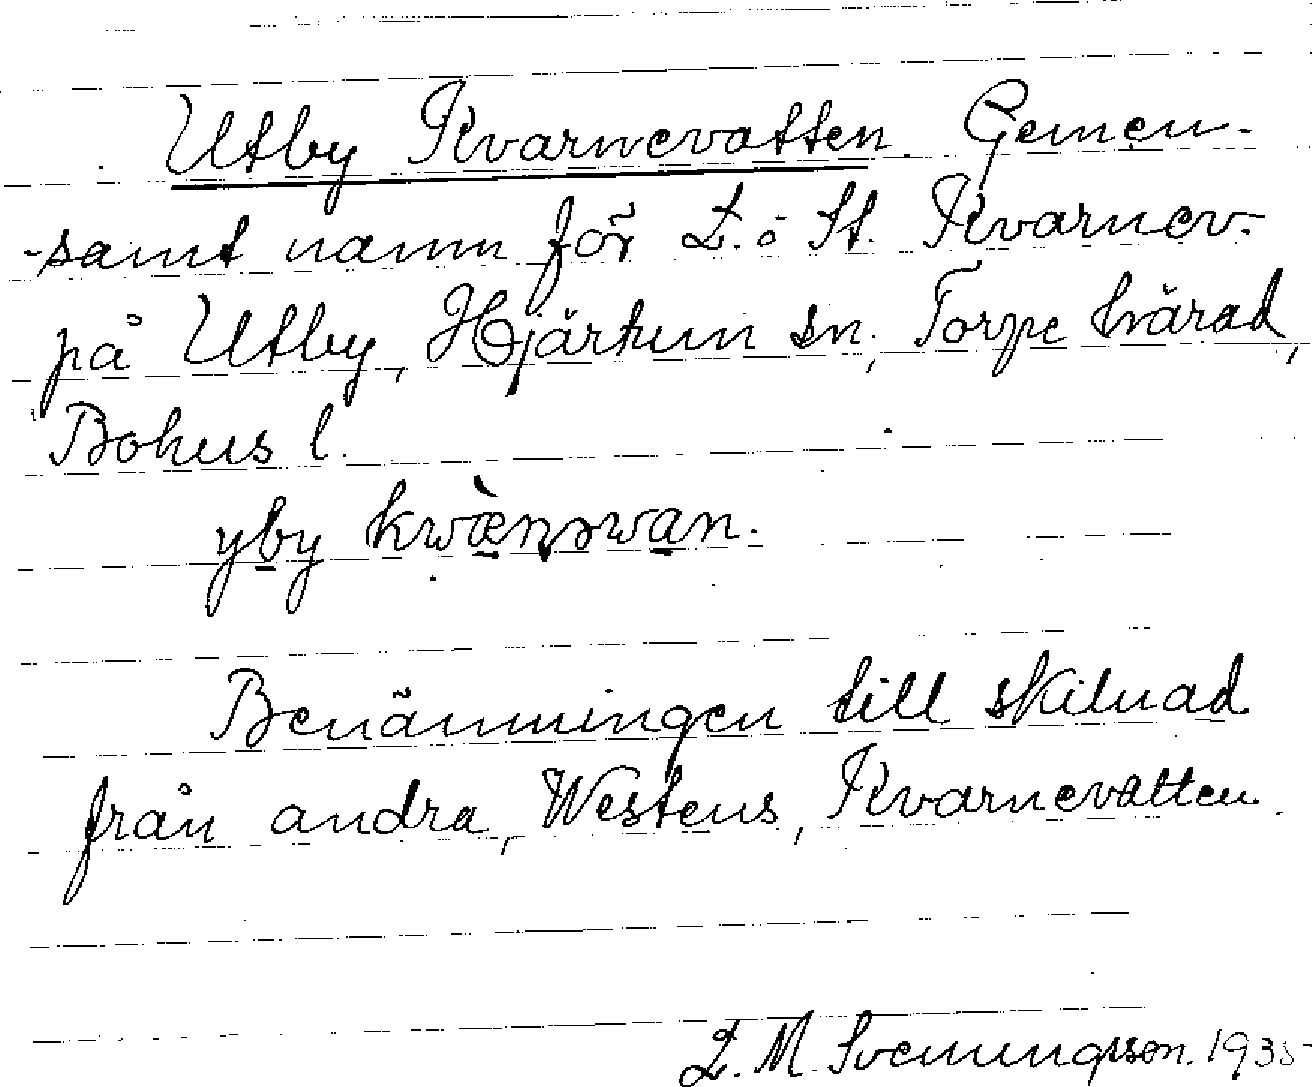 Utby Kvarnevatten. Gemen-
-samt namn för L. o St. Kvarnev.
på Utby, Hjärtum sn, Torpe härad,
Bohus l.
yby kwæ̀nəwan.
Benämningen till skilnad
från andra, Westens, Kvarnevatten.
L. M. Svenungsson. 1935